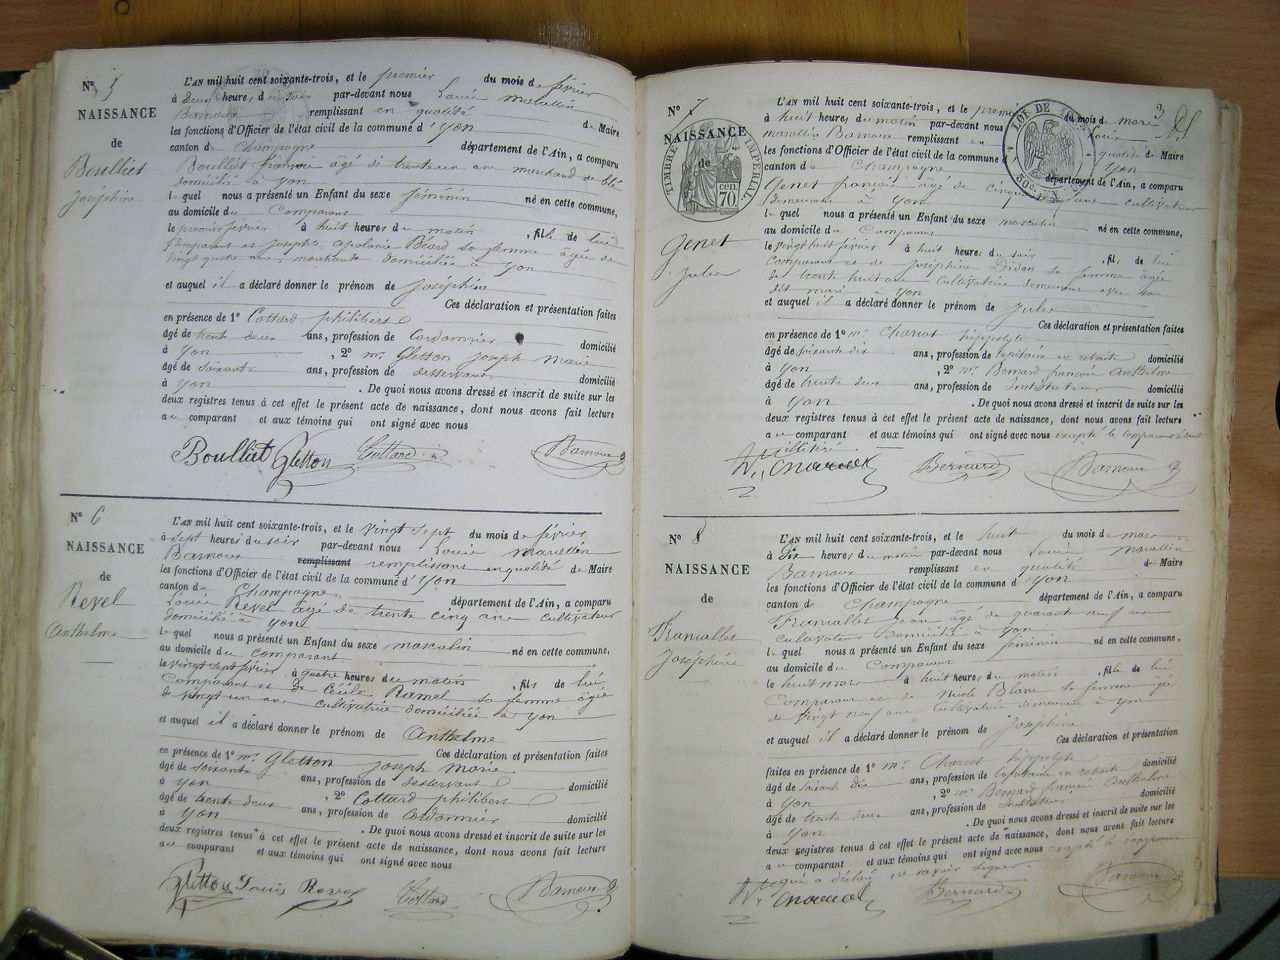 N° 5
NAISSANCE
de
Boulliet
Joséphine
L'AN mil huit cent soixante-trois, et le premier du mois de février
à deux heures du soir par-devant nous Louis Marcellin
Barnoux remplissant en qualité de Maire
les fonctions d'Officier de l'état civil de la commune d'Yon
canton de Champagne département de l'Ain, a comparu
Boulliet françois âgé de trente un ans marchand de blé
domicilié à Yon
lequel nous a présenté un Enfant du sexe féminin né en cette commune,
au domicile du Comparant
le premier février à huit heures du matin , fille de lui
Comparant et Josephte Apolonie Béard sa femme âgée de
vingt quatre ans, marchande domiciliée à Yon
et auquel il a déclaré donner le prénom de Joséphine
Ces déclaration et présentation faites
en présence de 1° Cottard philibert
âgé de trente deux ans, profession de Cordonnier domicilié
à Yon , 2° mr Gletton Joseph Marie
âgé de soixante ans, profession de desservant domicilié
à Yon . De quoi nous avons dressé et inscrit de suite sur les
deux registres tenus à cet effet le présent acte de naissance, dont nous avons fait lecture
au comparant et aux témoins qui ont signé avec nous
Boulliet Gletton Cottard Barnoux
N° 6
NAISSANCE
de
Revel
Anthelme
L'AN mil huit cent soixante-trois, et le vingt sept du mois de février
à sept heures du soir par-devant nous Louis Marcellin
Barnoux remplissant remplissant en qualité de Maire
les fonctions d'Officier de l'état civil de la commune d'Yon
canton de Champagne département de l'Ain, a comparu
Louis Revel âgé de trente cinq ans cultivateur
domicilié à Yon
lequel nous a présenté un Enfant du sexe masculin né en cette commune,
au domicile du comparant
le vingt sept février à quatre heures du matin , fils de lui
Comparant et de Cécile Ramel sa femme âgée
de vingt un ans cultivatrice domiciliée à Yon
et auquel il a déclaré donner le prénom de Anthelme
Ces déclaration et présentation faites
en présence de 1° mr Gletton Joseph Marie
âgé de soixante ans, profession de desservant domicilié
à Yon , 2° Cottard philibert
âgé de trente deux ans, profession de Cordonnier domicilié
à Yon . De quoi nous avons dressé et inscrit de suite sur les
deux registres tenus à cet effet le présent acte de naissance, dont nous avons fait lecture
au comparant et aux témoins qui ont signé avec nous
Gletton Louis Revel Cottard Barnoux
3
N° 7
NAISSANCE
de
TIMBRE IMPÉRIAL
cen. 70
Genet
Jules
L'AN mil huit cent soixante-trois, et le premier du mois de mars
à huit heures du matin par-devant nous Louis
Marcellin Barnoux remplissant en qualité de Maire
les fonctions d'Officier de l'état civil de la commune d'Yon
canton de Champagne département de l'Ain, a comparu
Genet françois âgé de cinquante ans cultivateur
Demeurant à Yon
lequel nous a présenté un Enfant du sexe masculin né en cette commune,
au domicile du Comparant
le vingt huit février à huit heures du soir , fils de lui
comparant et de Joséphine Didon sa femme âgée
de trente huit ans cultivatrice demeurant avec son
dit mari à Yon
et auquel il a déclaré donner le prénom de Jules
Ces déclaration et présentation faites
en présence de 1° mr Chariot hippolyte
âgé de soixante dix ans, profession de Capitaine en retraite domicilié
à Yon , 2° mr Bernard françois Anthelme
âgé de trente deux ans, profession de Instituteur domicilié
à Yon . De quoi nous avons dressé et inscrit de suite sur les
deux registres tenus à cet effet le présent acte de naissance, dont nous avons fait lecture
au comparant et aux témoins qui ont signé avec nous excepté le comparant étant
illitéré
Bernard Barnoux
N° 8
NAISSANCE
de
Joséphine
L'AN mil huit cent soixante-trois, et le huit du mois de mars
à Dix heures du matin par-devant nous Louis Marcellin
Barnoux remplissant en qualité de Maire
les fonctions d'Officier de l'état civil de la commune d'Yon
canton de Champagne département de l'Ain, a comparu
Jean âgé de quarante neuf ans
cultivateur Domicilié à Yon
lequel nous a présenté un Enfant du sexe féminin né en cette commune,
au domicile du Comparant
le huit mars à huit heures du matin , fille de lui
Comparant et de Blanc sa femme âgée
de vingt neuf ans Cultivatrice demeurant à Yon
et auquel il a déclaré donner le prénom de Joséphine
Ces déclaration et présentation
faites en présence de 1° mr Chariot hippolyte
âgé de soixante dix ans, profession de Capitaine en retraite domicilié
à Yon , 2° mr Bernard françois Anthelme
âgé de trente deux ans, profession de Instituteur domicilié
à Yon . De quoi nous avons dressé et inscrit de suite sur les
deux registres tenus à cet effet le présent acte de naissance, dont nous avons fait lecture
au comparant et aux témoins qui ont signé avec nous excepté le comparant
qui a déclaré ne savoir signer
Bernard Barnoux